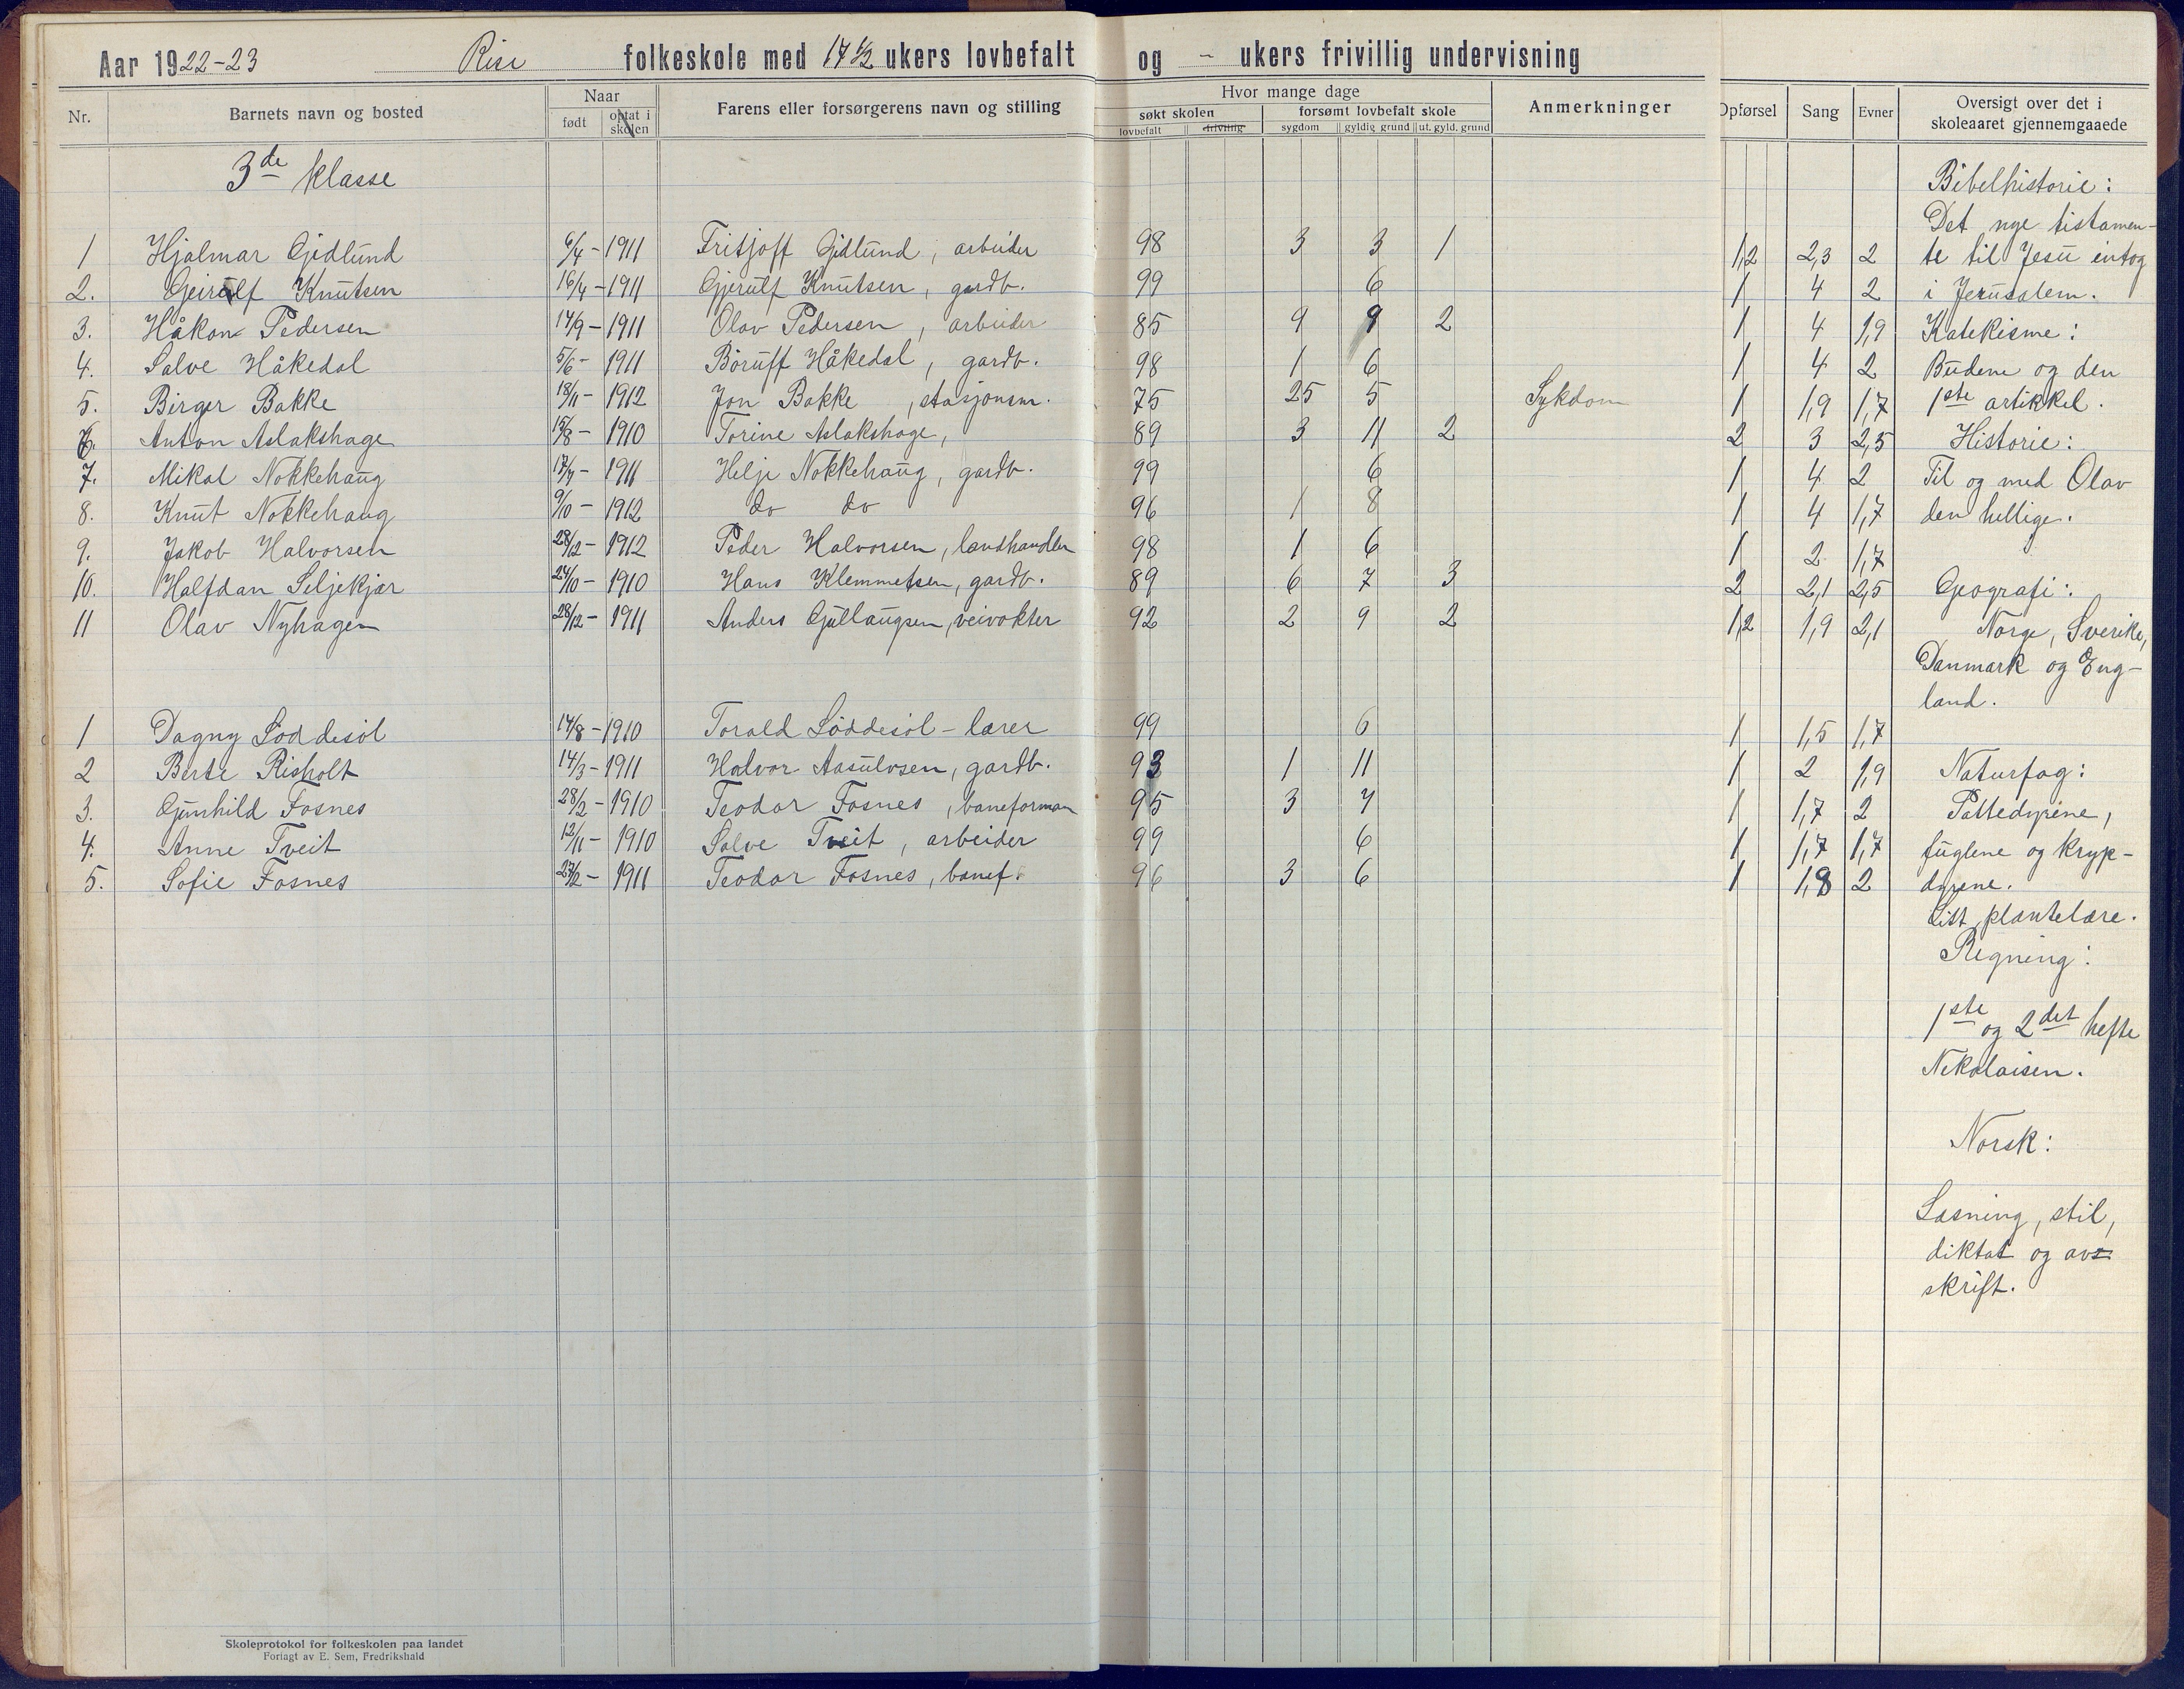 Aar 1922-23 Rise folkeskole med 17 1/2 ukers lovbefalt og - ukers frivillig undervisning
Nr. Barnets navn og bosted Naar født optat i skolen Farens eller forsørgerens navn og stilling Hvor mange dage søkt skolen lovbefalt frivillig forsømt lovbefalt skole sygdom gyldig grund ut. gyld. grund Anmerkninger Opførsel Sang Evner Oversigt over det i skoleaaret gjennemgaaede
3de klasse
1 Hjalmar Gjidlund 6/4 - 1911 Fritjoff Gjidlund, arbeider 98 3 3 1 1,2 2,3 2
2. Geirulf Knutsen 16/4 - 1911 Gjerulf Knutsen, gardb. 99 6 1 4 2
3. Håkon Pedersen 14/9 - 1911 Olav Pedersen, arbeider 85 9 9 2 1 4 1,9
4. Salve Håkedal 5/6 - 1911 Boruff Håkedal, gardb. 98 1 6 1 4 2
5. Birger Bakke 18/11 - 1912 Jon Bakke, stasjonsm. 75 25 5 Sykdom 1 1,9 1,7
6. Anton Aslakshage 15/8 - 1910 Torine Aslakshage, 89 3 11 2 2 3 2,5
7. Mikal Nokkehaug 17/7 - 1911 Helje Nokkehaug, gardb. 99 6 1 4 2
8. Knut Nokkehaug 9/10 - 1912 do do 96 1 8 1 4 1,7
9. Jakob Halvorsen 28/12 - 1912 Peder Halvorsen, landhandler 98 1 6 1 2 1,7
10. Halfdan Seljekjær 24/10 - 1910 Hans Klemmetsen, gardb. 89 6 7 3 2 2,1 2,5
11 Olav Nyhagen 28/12 - 1911 Anders Gullaugsen, veivokter 92 2 9 2 1,2 1,9 2,1
1 Dagny Løddesøl 14/8 - 1910 Torald Løddesøl - lærer 99 6 1 1,5 1,7
2 Berte Risholt 14/3 - 1911 Halvor Aasulvsen, gardb. 93 1 11 1 2 1,9
3. Gunhild Fosnes 28/2 - 1910 Teodor Fosnes, baneforman 95 3 7 1 1,7 2
4. Anne Tveit 12/11 - 1910 Salve Tveit, arbeider 99 6 1 1,7 1,7
5. Sofie Fosnes 27/2 - 1911 Teodor Fosnes, banef. 96 3 6 1 1,8 2
Bibelhistorie:
Det nye tistamen-
te til Jesu intog
i Jerusalem.
Katekisme:
Budene og den
1ste artikkel.
Historie:
Til og med Olav
den hellige.
Geografi:
Norge, Sverike,
Danmark og Eng-
land.
Naturfag:
Pattedyrene,
fuglene og kryp-
dyrene.
Litt plantelære.
Regning:
1ste og 2det hefte
Nikolaisen.
Norsk:
Læsning, stil,
diktat og av-
skrift.
Skoleprotokol for folkeskolen paa landet
Forlagt av E. Sem, Fredrikshald